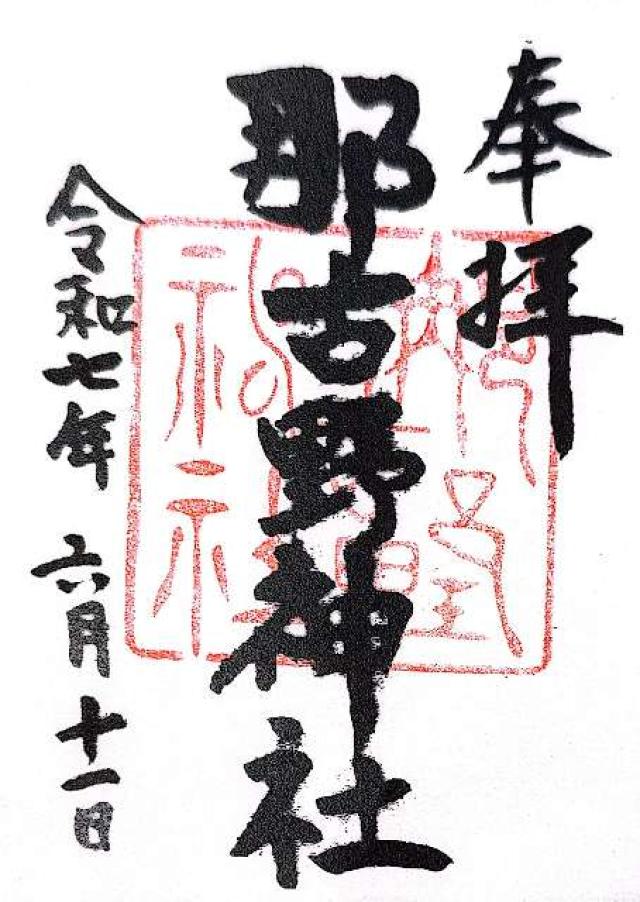 奉拝
那古野神社
令和七年 六月十一日